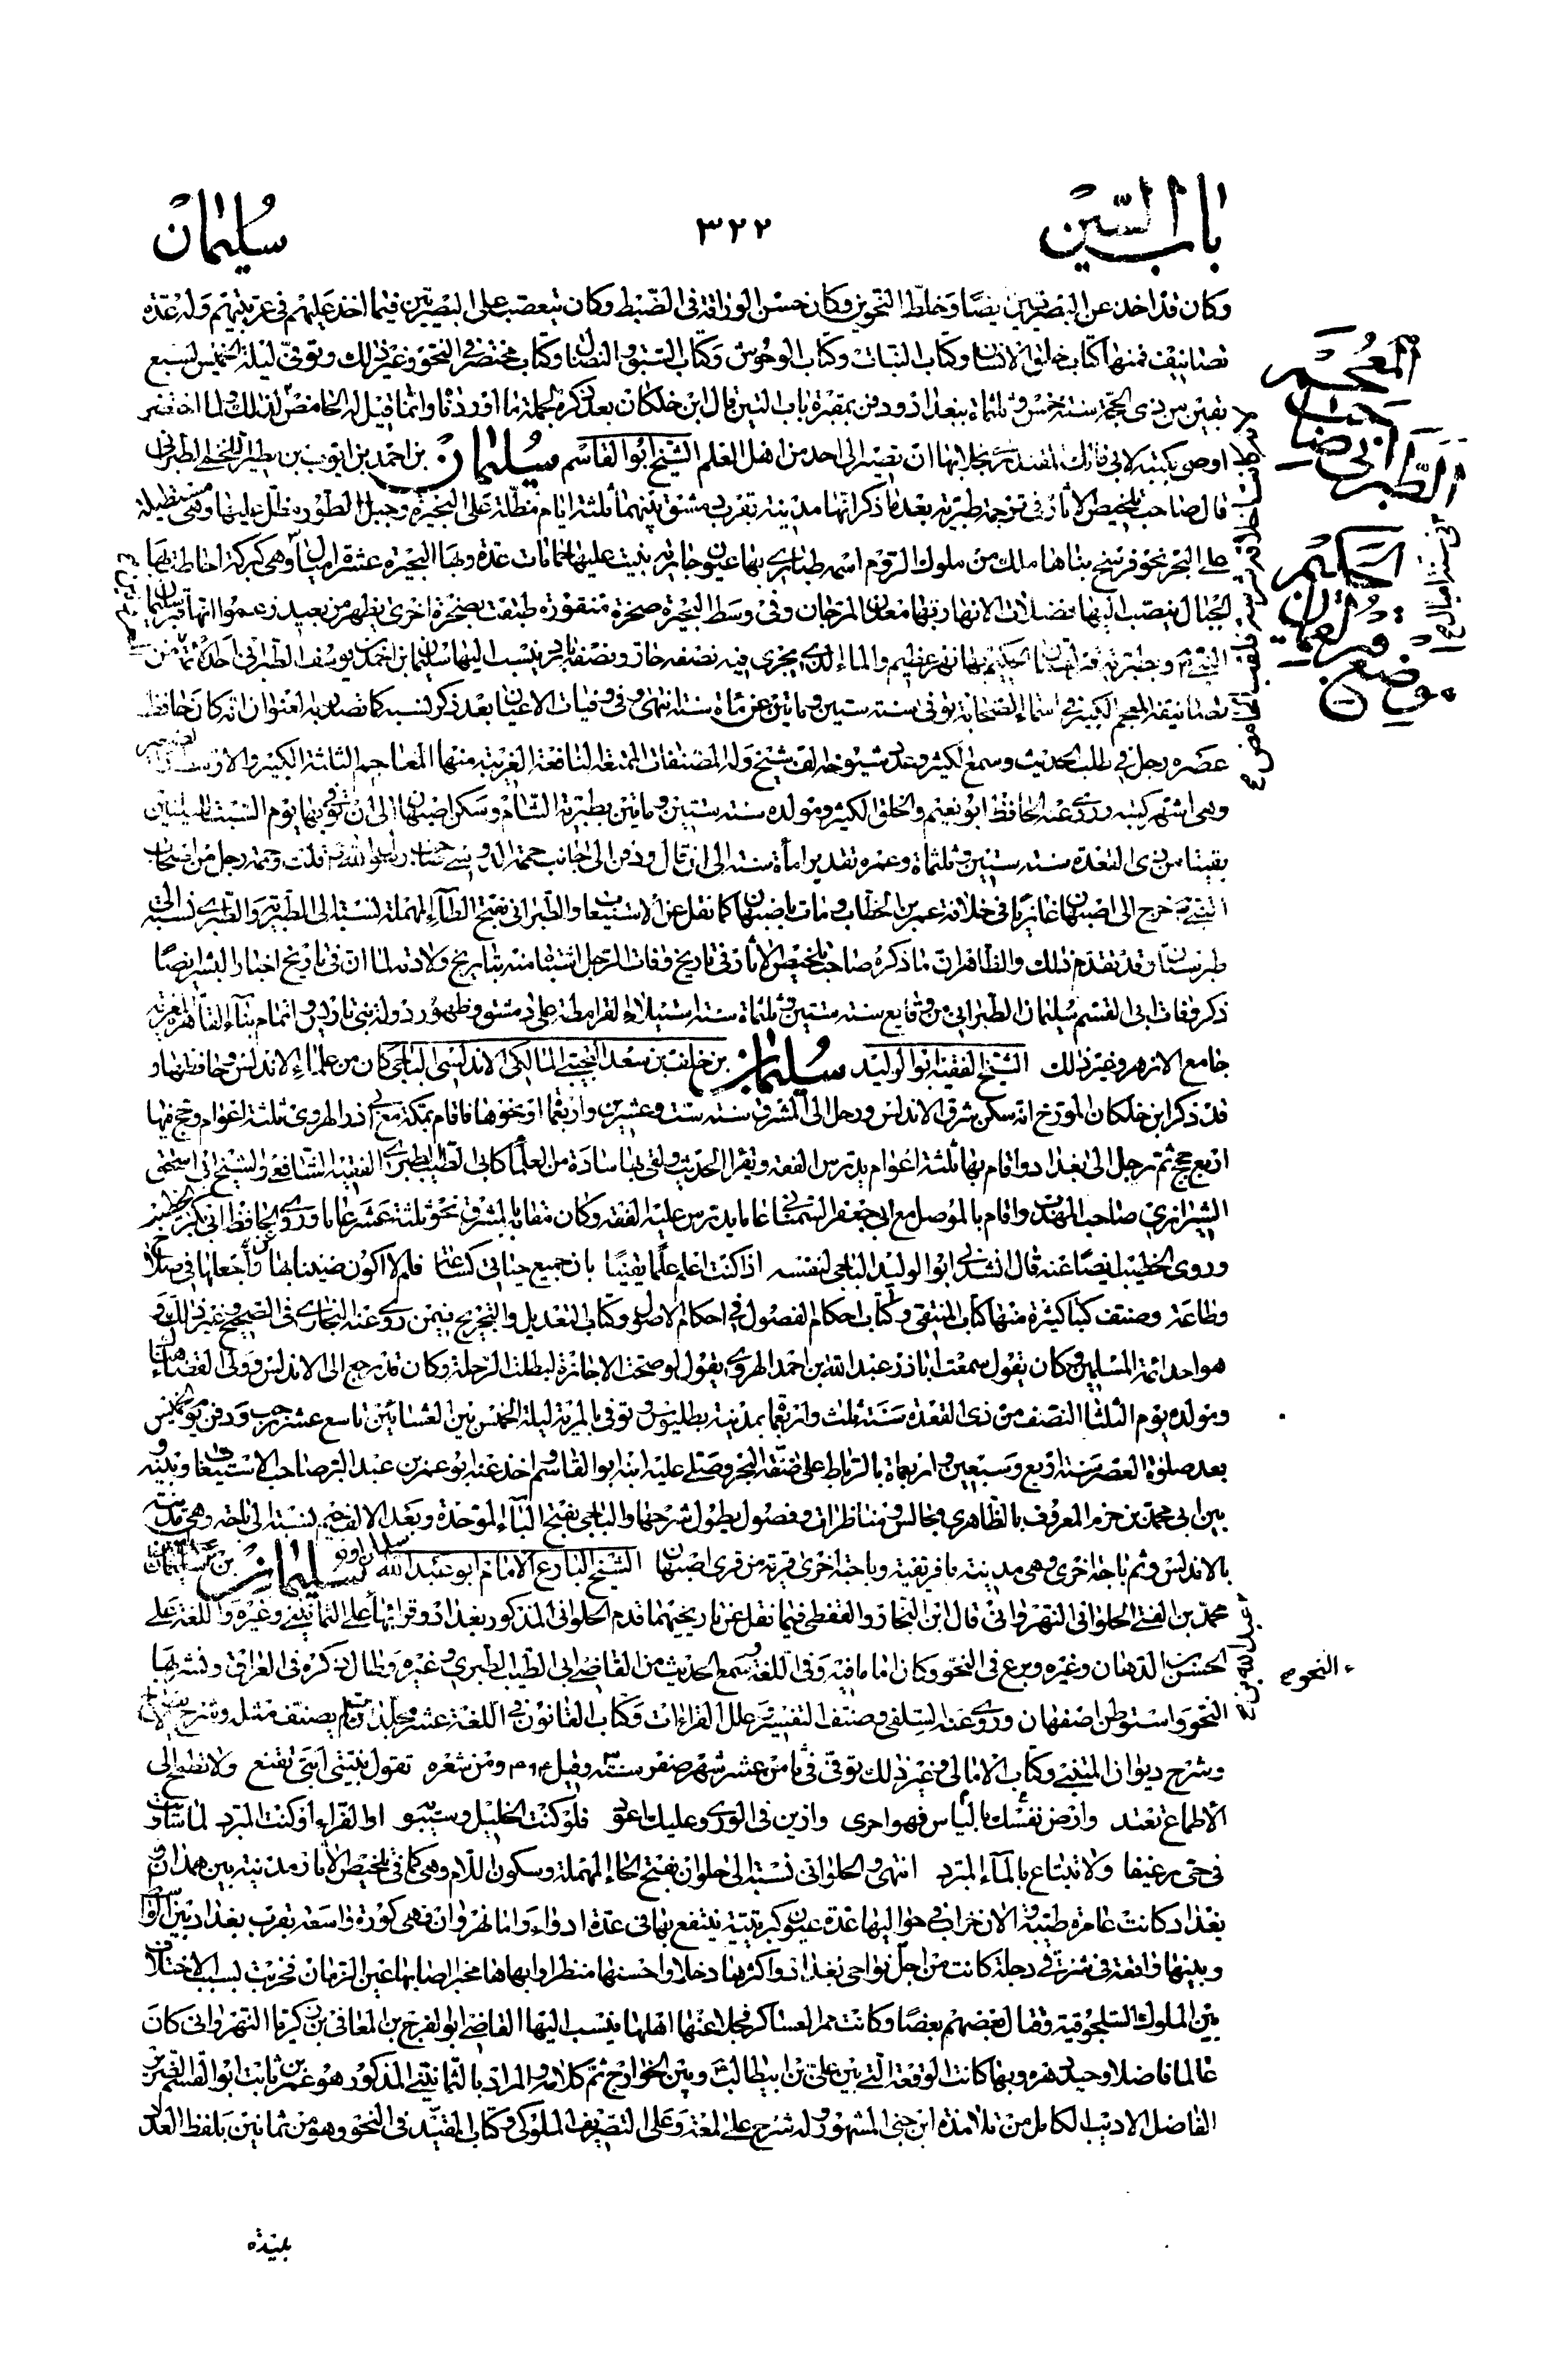 باب السّين
٣٢٢
سليمان
وكان قد اخذ عن البصريين ايضا وخلط النحوين وكان حسن الوراقة فى الضبط وكان يتعصب على البصريين فيما اخذ عليهم فى عربيتهم وله عدة
تصانيف فمنها كتاب خلق الانسان وكتاب النبات وكتاب الوحوش وكتاب السبق والنضال وكتاب مختصر فى النحو وغير ذلك وتوفى ليلة الخميس لسبع
بقين من ذى الحجة سنة خمس وثلثماة ببغداد ودفن بمقبرة باب التين قال ابن خلكان بعد ذكره لجملة ما اوردنا وانما قيل له الحامض لذلك ولما احتضر
اوصى بكتبه لابى فاتك المقتدرى بخلا بها ان تصير الى احد من اهل العلم الشيخ ابو القاسم سليمان بن احمد بن ايوب بن مطير اللخمى الطبرانى
قال صاحب تلخيص الاثار فى ترجمة طبرية بعد ما ذكر انها مدينة بقرب دمشق بينهما ثلثة ايام مطلة على البحيرة وجبل الطور مطل عليها وهى مستطيلة
على البحر نحو فرسخ بناها ملك من ملوك الروم اسمه طبارى بها عيون جارية بنيت عليها حمامات عدة وبها البحيرة عشرة اميال وهى كبركة احاط بها
الجبال ينصب اليها فضلات الانهار وبها معدن المرجان وفى وسط البحيرة صخرة منقورة طبقت بصخرة اخرى يظهر من بعيد زعموا انها قبر سليمان
النبى وبطبرية قبر لقمان الحكيم بها نهر عظيم والماء الذى يجرى فيه نصفه حار ونصفه بارد ينسب اليها سليمان بن احمد بن يوسف الطبرانى احد الائمة من
تصانيفه المعجم الكبير فى اسماء الصحابة توفى سنة ستين وماتين عن مأة سنة انتهى وفى وفيات الاعيان بعد ذكر نسبه كما تصدر به العنوان انه كان حافظ
عصره رحل فى طلب الحديث وسمع الكثير وعدد شيوخه الف شيخ وله المصنفات الممتعة النافعة الغريبة منها المعاجم الثلثة الكبير والاوسط والصغير
وهى اشهر كتبه وروى عنه الحافظ ابو نعيم والخلق الكثير ومولده سنة ستين وماتين بطبرية الشام وسكن اصبهان الى ان توفى بها يوم السبت لليلتين
بقيتا من ذى القعدة سنة ستين وثلثماة وعمره تقديرا مأة سنة الى ان قال ودفن الى جانب حممة الدوسى صاحب رسول الله قلت وحممة رجل من اصحاب
النبى خرج الى اصبهان غازيا فى خلافة عمر بن الخطاب ومات باصبهان كما نقل عن الاستيعاب والطبرانى بفتح الطاء المهملة نسبة الى الطبرية والطبرى نسبة الى
طبرستان وقد تقدم ذلك والظاهر ان ما ذكره صاحب تلخيص الاثار فى تاريخ وفات الرجل اشتباه منه بتاريخ ولادته لما ان فى تاريخ اخبار البشر ايضا
ذكر وفات ابى القسم سليمان الطبرانى من وقايع سنة ستين وثلثماة سنة استيلاء القرامطة على دمشق وظهور دولة بنى باديس واتمام بناء القاهرة المعزية
جامع الازهر وغير ذلك الشيخ الفقيه ابو الوليد سليمان بن خلف بن سعد التجيبى المالكى الاندلسى الباجى كان من علماء الاندلس وحافظها و
قد ذكر ابن خلكان المورخ انه سكن شرق الاندلس ورحل الى المشرق سنة ست وعشرين واربعماة او نحوها فاقام بمكة مع ابى ذر الهروى ثلثة اعوام وحج فيها
اربع حجج ثم رحل الى بغداد واقام بها ثلثة اعوام يدرس الفقه ويقرا الحديث ولقى بها سادة من العلماء كابى الطيب الطبرى الفقيه الشافعى والشيخ ابى اسحق
الشيرازى صاحب المهذب واقام بالموصل مع ابى جعفر السمنانى عاما يدرس عليه الفقه وكان مقامه بالمشرق نحو ثلثة عشر عاما وروى عن الحافظ ابى بكر الخطيب
وروى الخطيب ايضا عنه قال انشدنى ابو الوليد الباجى لنفسه اذا كنت اعلم علما يقينيا بان جميع حياتى كساعة فلم لا اكون ضنينا بها واجعلها فى صلاح
وطاعة وصنف كتبا كثيرة منها كتاب المنتقى وكتاب احكام الفصول فى احكام الاصول وكتاب التعديل والتجريح فيمن روى عنه البخارى فى الصحيح وغير ذلك و
هو احد ائمة المسلمين وكان يقول سمعت اباذر عبد الله بن احمد الهروى يقول لو صحت الاجازة لبطلت الرحلة وكان قد رجع الى الاندلس وولى القضاء هناك
ومولده يوم الثلثا النصف من ذى القعدة سنة ثلث واربعماة بمدينة بطليوس وتوفى بالمرية ليلة الخميس بين العشائين تاسع عشر رجب ودفن يوم الخميس
بعد صلوة العصر سنة اربع وسبعين واربعماة بالرباط على ضفة البحر وصلى عليه ابنه ابو القاسم واخذ عنه ابو عمر بن عبد البر صاحب الاستيعاب وبينه و
بين ابى محمد بن حزم المعروف بالظاهرى مجالس ومناظرات وفصول يطول شرحها والباجى بفتح الباء الموحدة وبعد الالف جيم نسبة الى باجة وهى مدينة
بالاندلس وثم باجة اخرى وهى مدينة بافريقية وباجة اخرى قرية من قرى اصبهان الشيخ البارع الامام ابو عبد الله سليمان بن
محمد بن الفتى الحلوانى النهروانى قال ابن النجار والقفطى فيما نقل عن تاريخيهما قدم الحلوانى المذكور بغداد وقرا بها على الثمانينى وغيره واللغة على
الحسن بن الدهان وغيره وبرع فى النحو وكان اماما فيه وفى اللغة وسمع الحديث من القاضى ابى الطيب الطبرى وغيره وطال ذكره فى العراق ونشر بها
النحو واستوطن اصفهان وروى عنه السلفى وصنف التفسير علل القراءات وكتاب القانون فى اللغة عشر مجلدات لم يصنف مثله وشرح الايضاح
وشرح ديوان المتنبى وكتاب الامالى وغير ذلك توفى فى ثامن عشر شهر صفر سنة وقيل ومن شعره تقول بنيتى ابتى تقنع ولا تطمح الى
الاطماع تعتد وارض نفسك بالياس فهو احرى وازين فى الورى وعليك اعود فلو كنت الخليل وسيبويه او الفراء او كنت المبرد لما ساويت
فى حى رغيفا ولا تبتاع بالماء المبرد انتهى والحلوانى نسبة الى حلوان بفتح الحاء المهملة وسكون اللام وهى كما فى تلخيص الاثار مدينة بين همدان و
بغداد كانت عامرة طيبة والان خراب وفى حواليها عدة عيون كبريتية ينتفع بها فى عدة ادواء واما نهروان فهى كورة واسعة بقرب بغداد بين
وبينها واقعة فى شرقى دجلة كانت من اجل نواحى بغداد واكثرها دخلا واحسنها منظرا وابهاها مخبرا اصابها عين الزمان فخربت بسبب الاختلاف
بين الملوك السلجوقية وقتال بعضهم بعضا وكانت ممر العساكر فجلا عنها اهلها ينسب اليها القاضى ابو الفرج بن المعافى بن زكريا النهروانى كان
عالما فاضلا وحيد دهره وبها كانت الوقعة التى بين على بن ابيطالب وبين الخوارج ثم كلامه والمراد بالثمانينى المذكور هو عمر بن ثابت ابو القسم الضرير
الفاضل الاديب الكامل من تلامذة ابن جنى المشهور وله شرح على اللمع وعلى التصريف الملوكى وكتاب المقيد فى النحو وهو من ثمانين بلفظ العدد
بليدة
المعجم
صاحب
الطبرانى
الحكيم
لقمان
موضع قبر
النحو